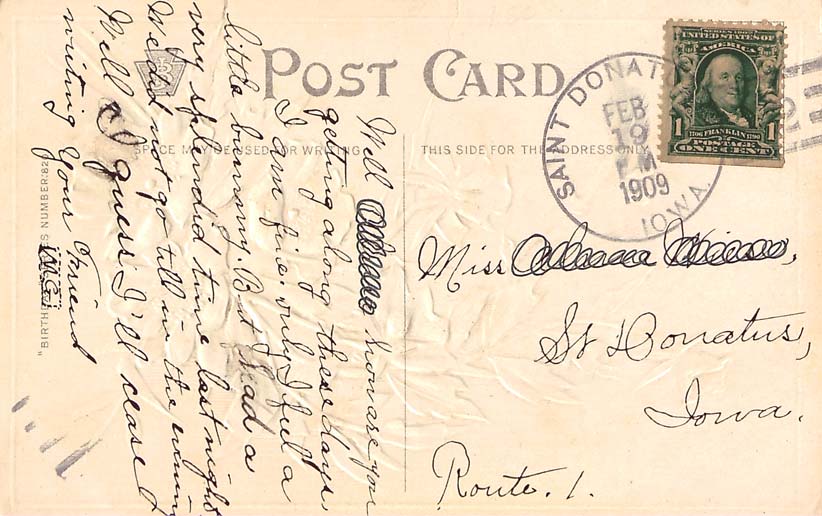 POST CARD
SPACE MAY BE USED FOR WRITING
THIS SIDE FOR THE ADDRESS ONLY
SERIES 1902
UNITED STATES OF
AMERICA
1706 FRANKLIN 1790
1 POSTAGE 1
ONE CENT
SAINT DONATUS
FEB
19
PM
1909
IOWA.
Miss
St Donatus,
Iowa.
Route. 1.
Well how are you
getting along these days
I am fine only I feel a
little bummy. But I had a
very splendid time last night
We did not go till in the evening
Well I guess I'll cease
writing Your Friend
M.G.
"BIRTH SERIES NUMBER:82